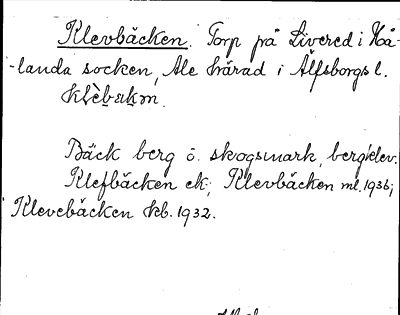 Klevbäcken. Torp på Livered i Hå-
-landa socken, Ale härad i Älfsborgs l.
Bäck berg o. skogsmark, bergklev.
Klefbäcken ek; Klevbäcken ml. 1936;
Klevebäcken kb. 1932.